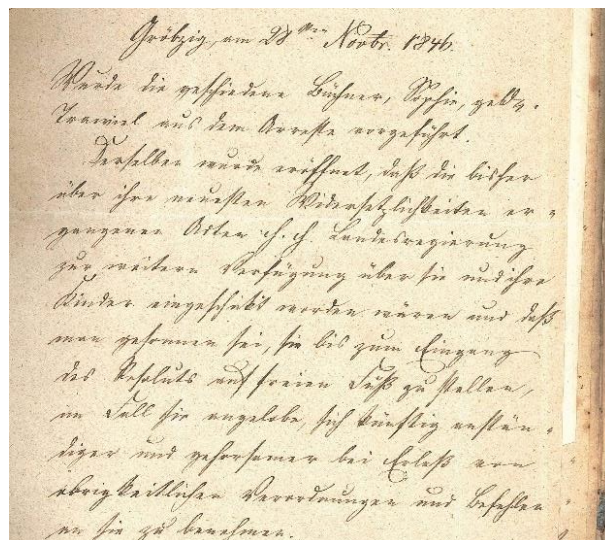 Gröbzig, am 28sten Novbr. 1846.
Wurde die geschiedene Büchner, Sophie, geb.
aus dem Arreste vorgeführt.
Derselben wurde eröffnet, daß die bisher
über ihre neuesten Widersetzlichkeiten er-
gangenen Acten h. h. Landesregierung
zur weitern Verfügung über sie und ihre
Kinder eingeschickt worden wären und daß
man gesonnen sei, sie bis zum Eingang
des Resoluts auf freien Fuß zu stellen,
im Fall sie angelobe, sich künftig anstän-
diger und gehorsamer bei Erlaß von
obrigkeitlichen Verordnungen und Befehlen
an sie zu benehmen.